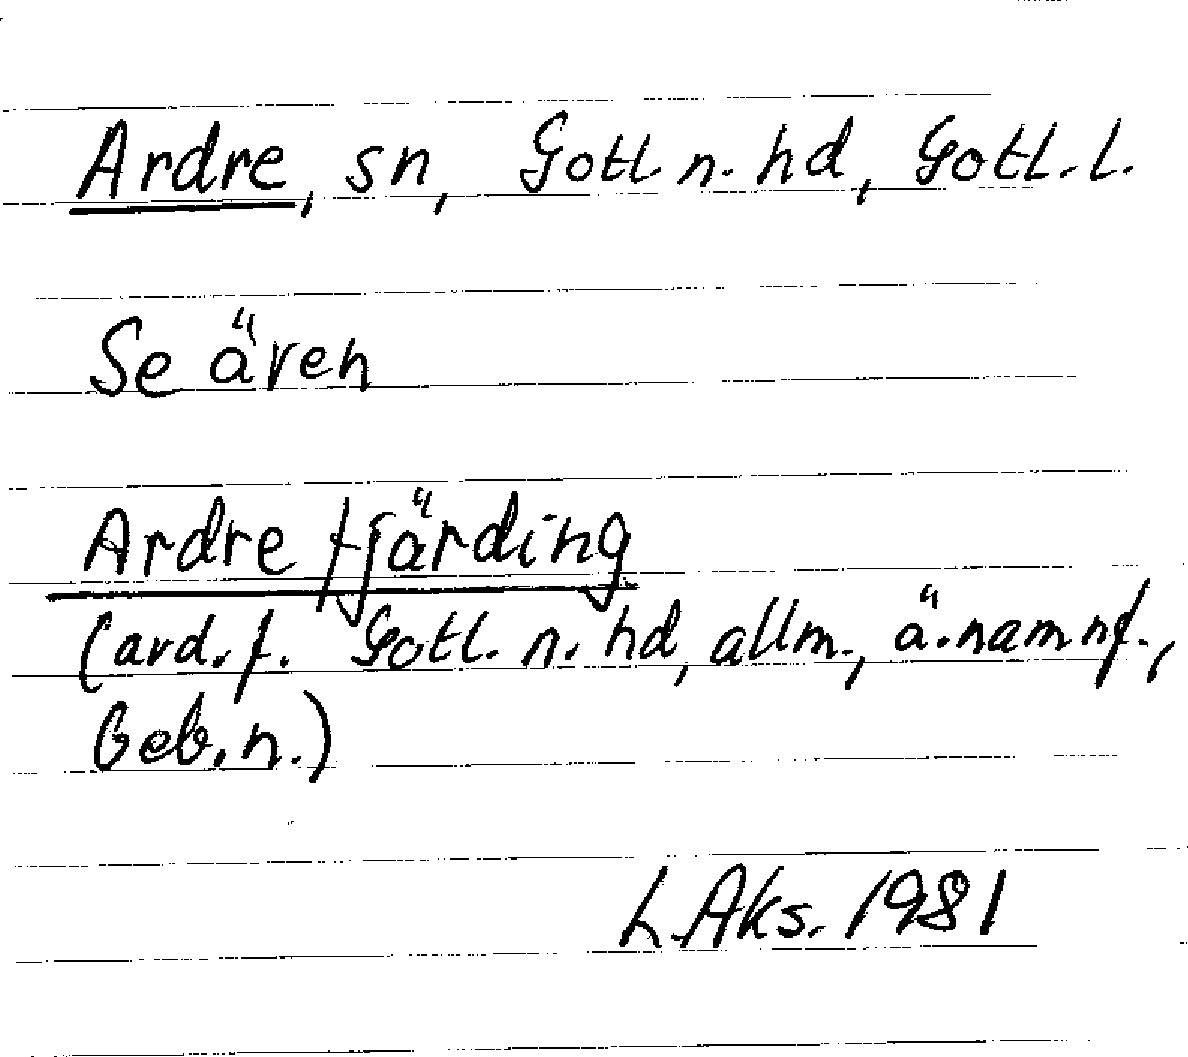 Ardre, sn, Gotl. n. hd, Gotl. l.
Se även
Ardre fjärding
(ard. f. Gotl. n. hd, allm., ä. namnf.,
beb.n.)
L. Aks. 1981